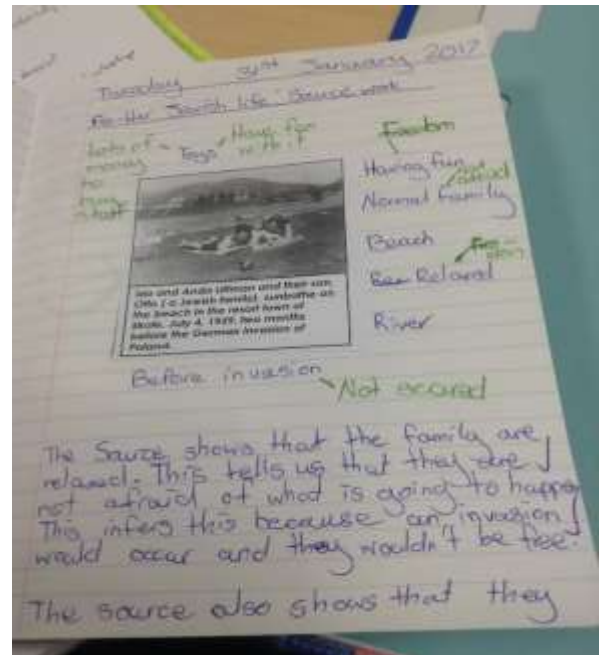 Tuesday 31st January 2017
Pre-War Jewish life: Source work
Lots of
money
to
buy
stuff
Toys
Have fun
with it
Freedom
Having fun
Normal family
Beach
Relaxed
River
Ida and Anda Ullman and their son,
Otto (a Jewish family), sunbathe on
the beach in the resort town of
Skole, July 4, 1939, two months
before the German invasion of
Poland.
Before invasion
Not scared
The Source shows that the family are
relaxed. This tells us that they are
not afraid of what is going to happen
This infers this because an invasion
would occur and they wouldn't be free.
The source also shows that they